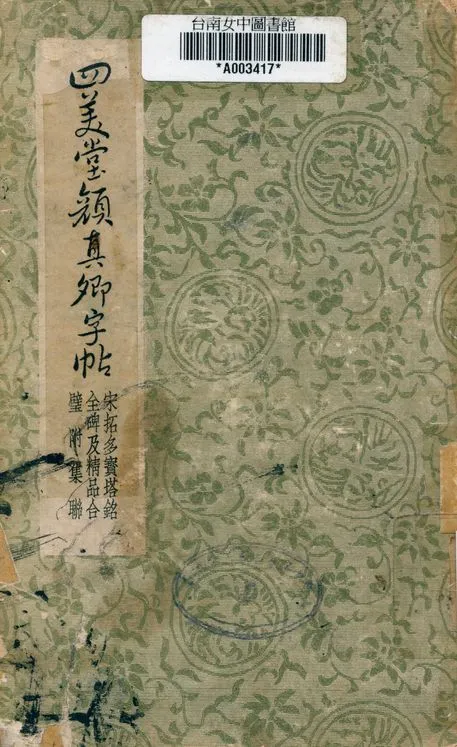 台南女中圖書館
*A003417*
四美堂顏真卿字帖
宋拓多寶塔銘
全碑及精品合
璧附集聯